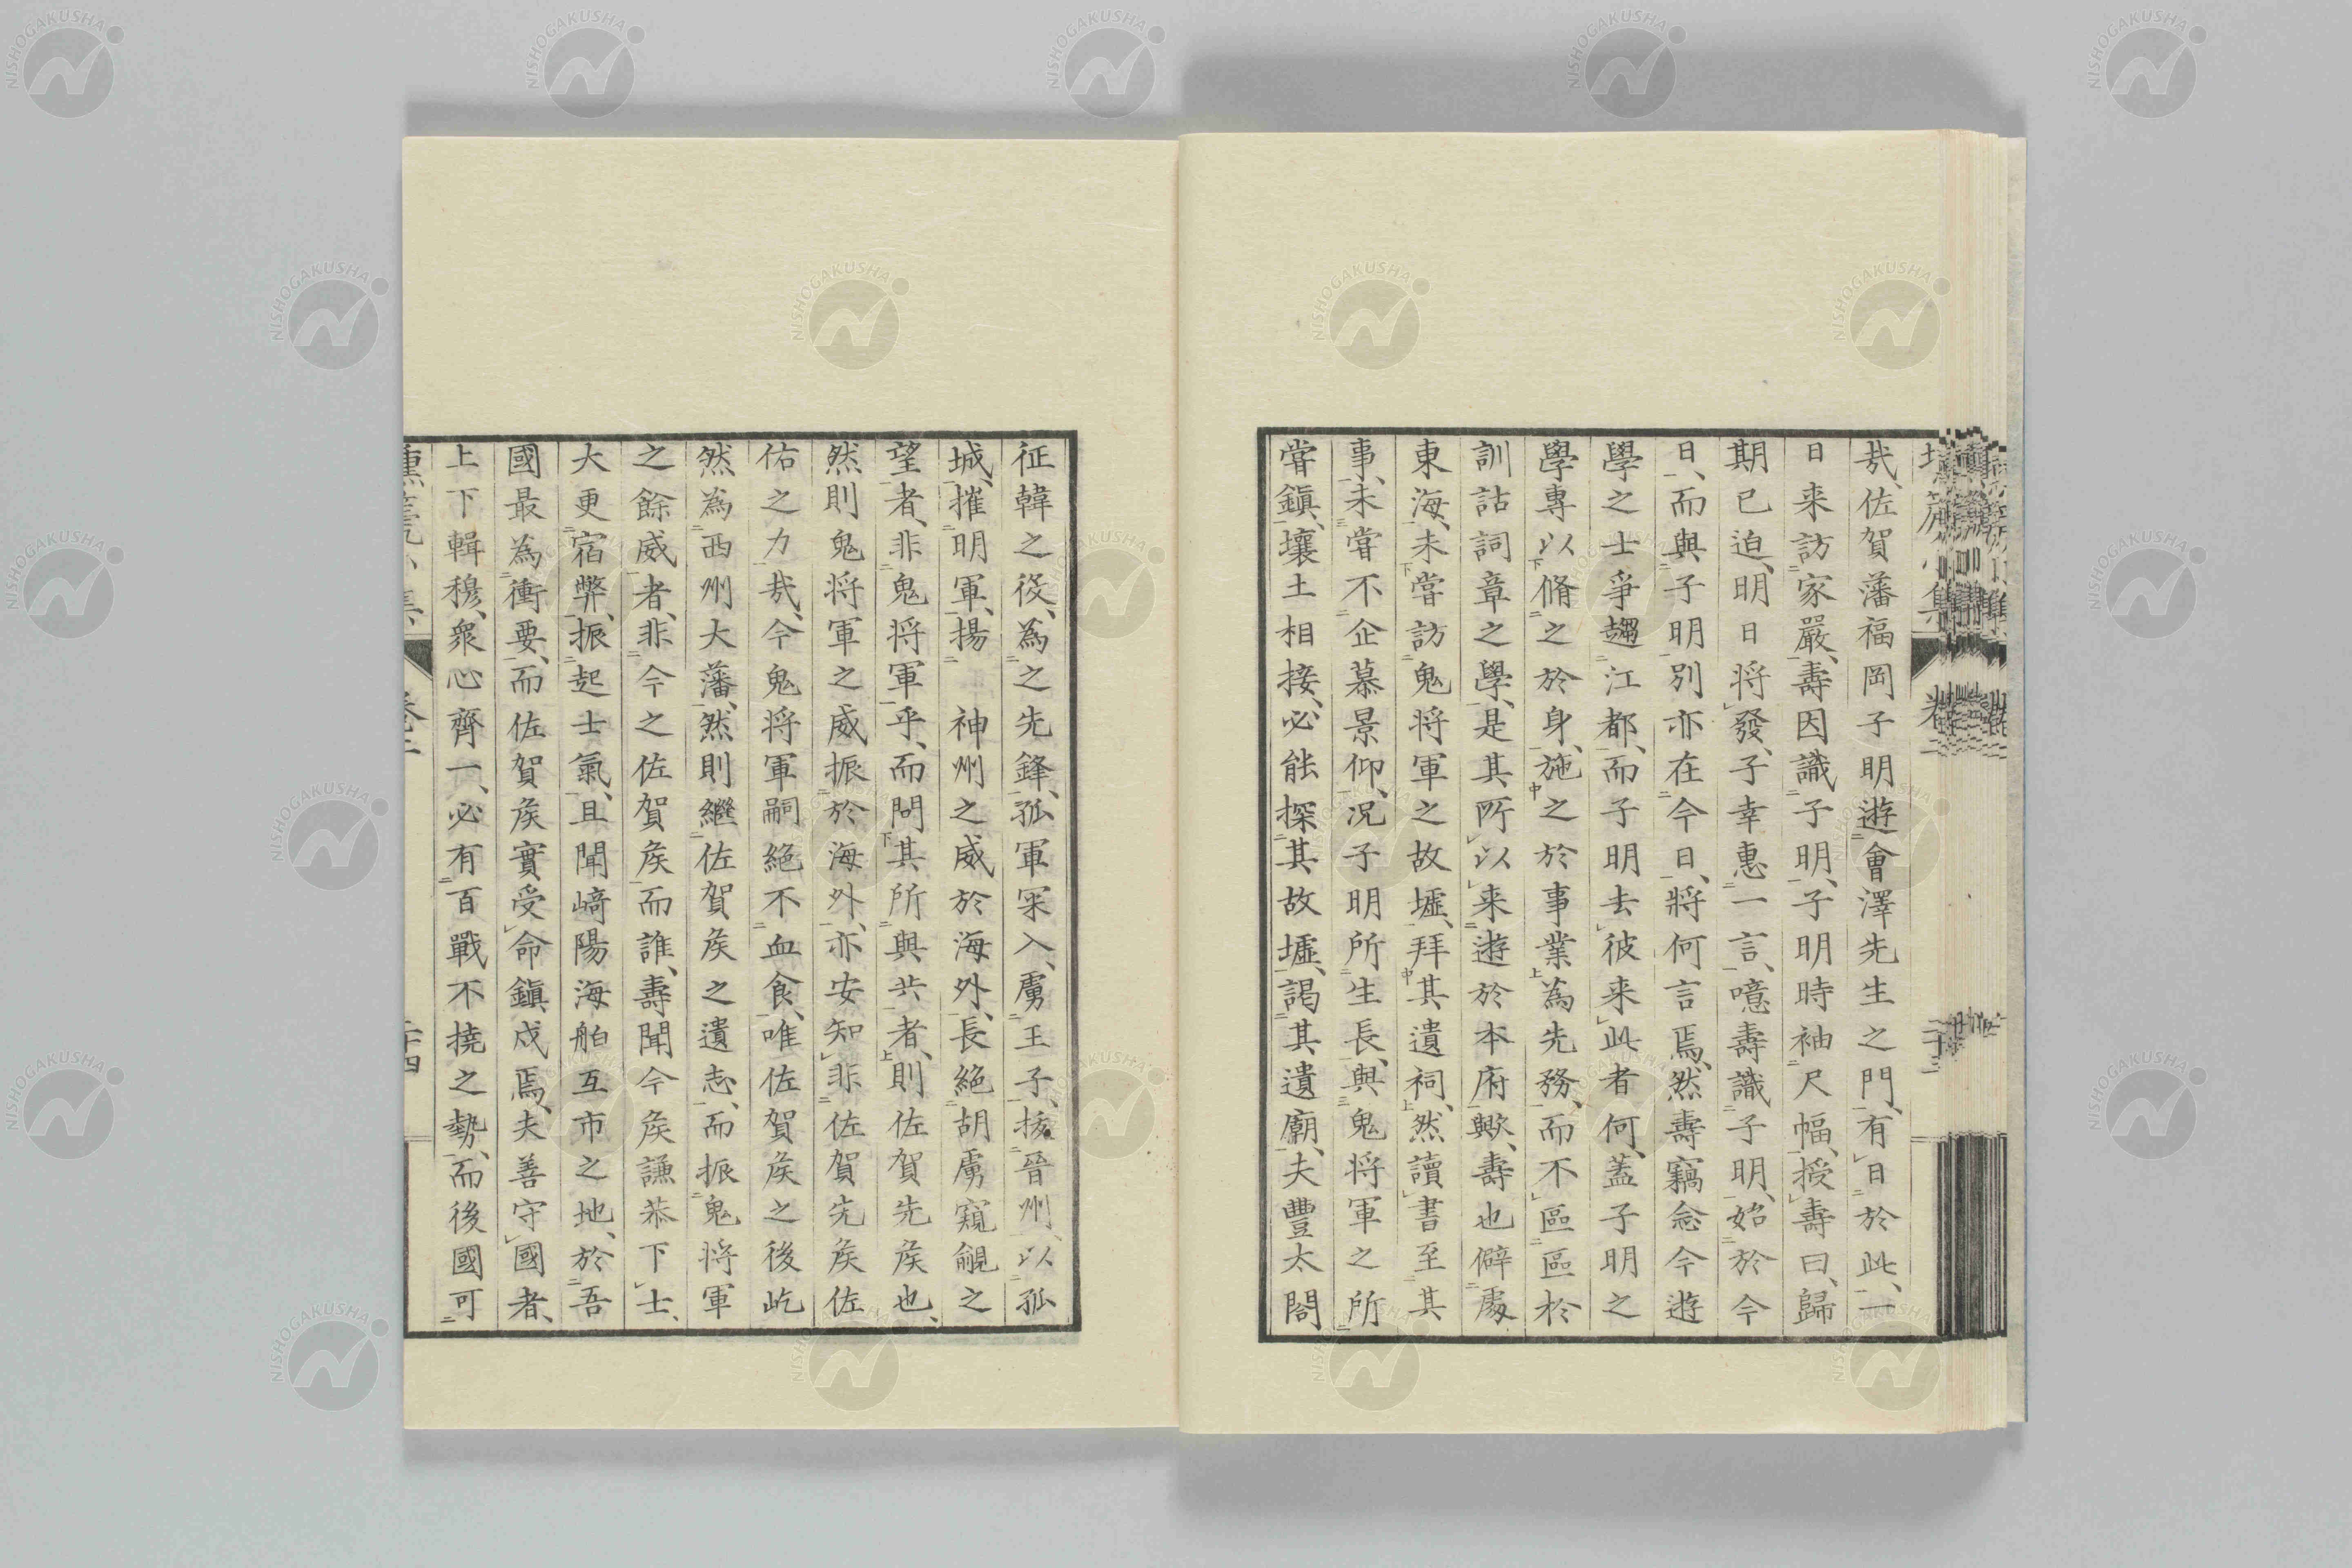 哉、佐賀藩福岡子明遊會澤先生之門、有日於此、一
日来訪家嚴、壽因識子明、子明時袖尺幅、授壽曰、歸
期已迫、明日将發、子幸惠一言、噫壽識子明、始於今
日、而與子明別亦在今日、將何言焉、然壽竊念今遊
學之士爭趨江都、而子明去彼来此者何、蓋子明之
學專以脩之於身、施之於事業為先務、而不區區於
訓詁詞章之學、是其所以来遊於本府歟、壽也僻處
東海、未嘗訪鬼将軍之故墟、拜其遺祠、然讀書至其
事、未嘗不企慕景仰、况子明所生長、與鬼将軍之所
嘗鎭、壤土相接、必能探其故墟、謁其遺廟、夫豐太閤
征韓之役、為之先鋒、孤軍罙入、虜王子、拔晉州、以孤
城、摧明軍、揚 神州之威於海外、長絶胡虜窺覦之
望者、非鬼将軍乎、而問其所與共者、則佐賀先矦也、
然則鬼将軍之威振於海外、亦安知非佐賀先矦佐
佑之力哉、今鬼将軍嗣絶不血食、唯佐賀矦之後屹
然為西州大藩、然則繼佐賀矦之遺志、而振鬼将軍
之餘威者、非今之佐賀矦而誰、壽聞今矦謙恭下士、
大更宿弊、振起士氣、且聞﨑陽海舶互市之地、於吾
國最為衝要、而佐賀矦實受命鎭戍焉、夫善守國者、
上下輯穆、衆心齊一、必有百戰不撓之勢、而後國可
二十四